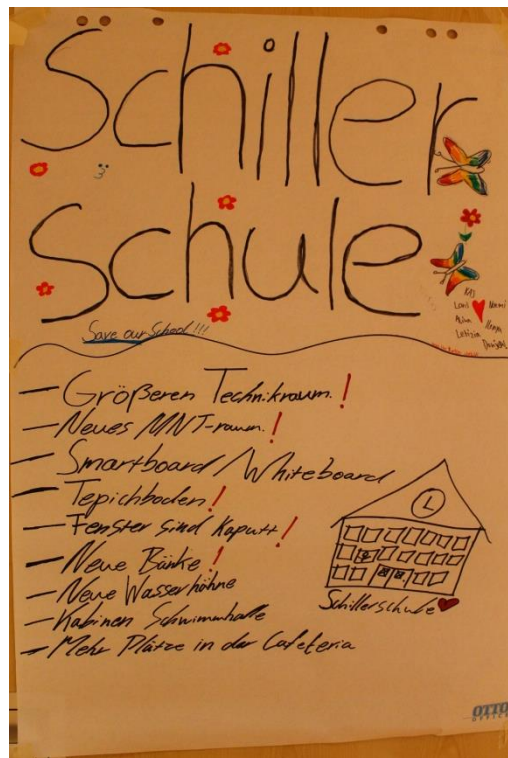 Schiller
Schule
Save our School!!!
– Größeren Technikraum. !
– Neues MNT-raum. !
– Smartboard / Whiteboard
– Tepichboden !
– Fenster sind Kaputt !
– Neue Bänke !
– Neue Wasserhöhne
– Kabinen Schwimmhalle
– Mehr Plätze in der Cafeteria
L
Schillerschule
OTTO
OFFICE